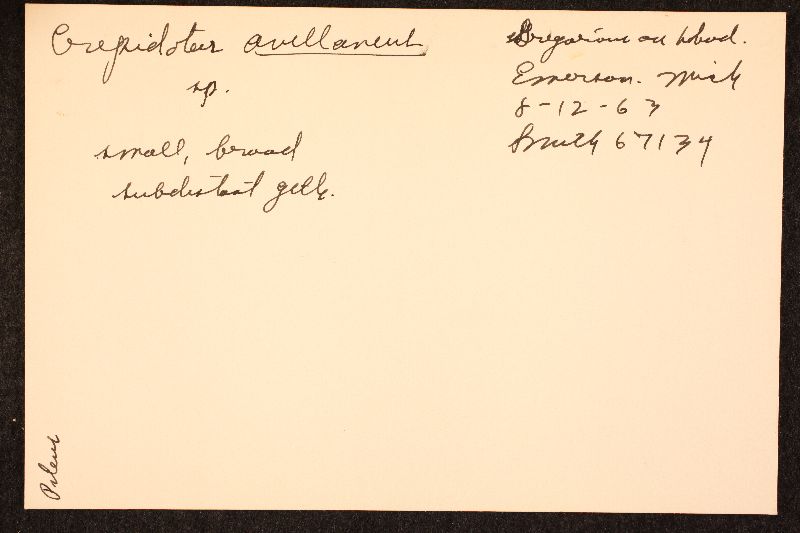 Crepidotus avellaneus
sp.
small, broad
subdistant gills.
Gregarious on hdwd.
Emerson. Mich
8-12-63
Smith 67134
Pileus